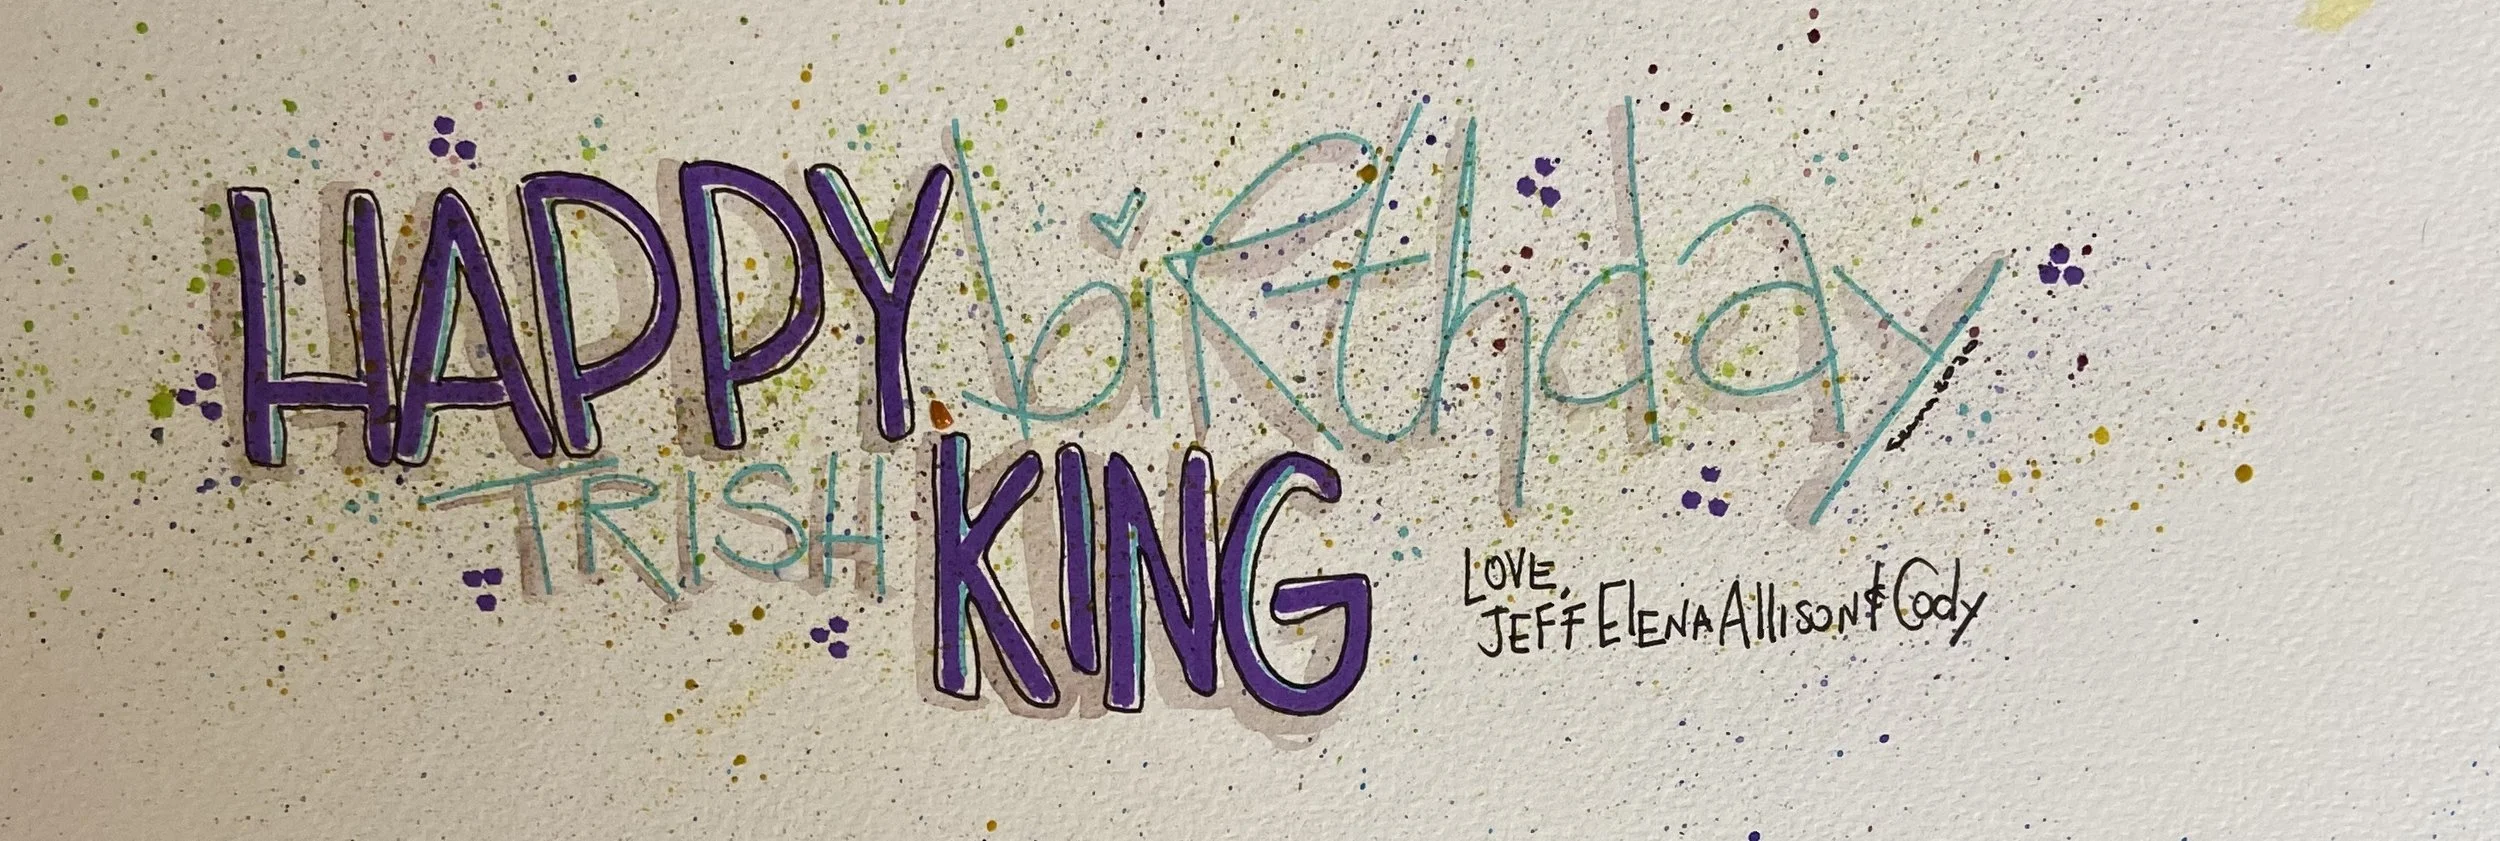 HAPPY biRthday
TRISH KING
LOVE,
JEFF ElENA AlliSON & Cody